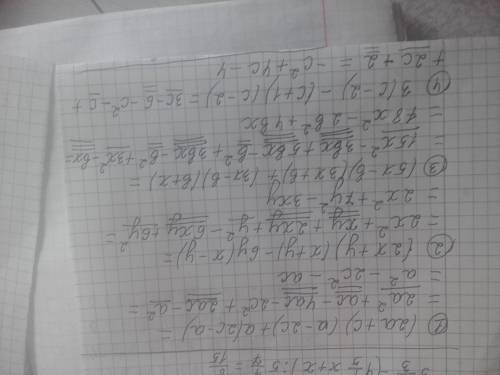 ① (2a+c)(a-2c)+a(2c-a) =
= 2a²+ac-4ac-2c²+2ac-a² =
= a²-2c²-ac
② (2x+y)(x+y)-6y(x-y)=
= 2x²+xy+2xy+y²-6xy+6y² =
= 2x²+7y²-3xy
③ (5x-b)(3x+b)+(3x-b)(b+x) =
= 15x²-3bx+5bx-b²+3bx-b²+3x²-bx=
= 18x²-2b²+4bx
④ 3(c-2)-(c+1)(c-2)=3c-6-c²-c+
+2c+2 = -c²+4c-4